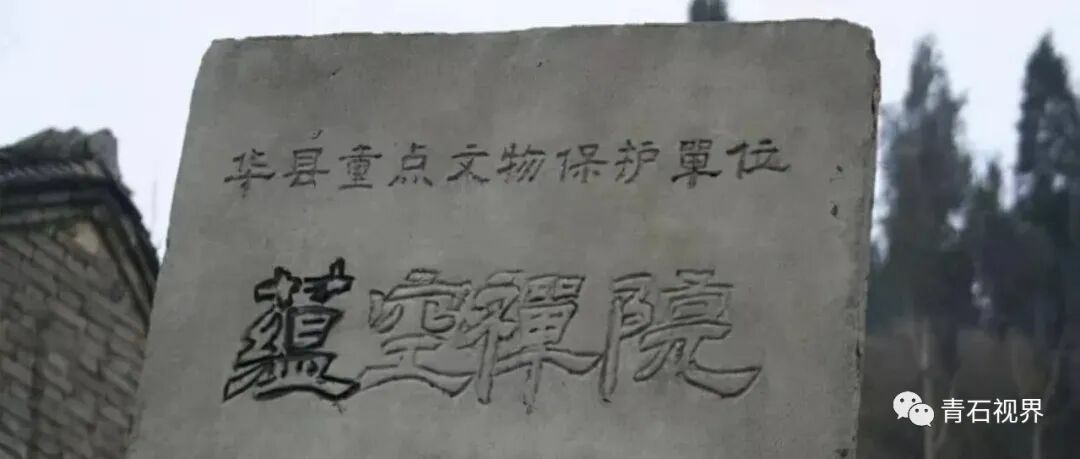 华县重点文物保护單位
蕴空禪院
青石视界